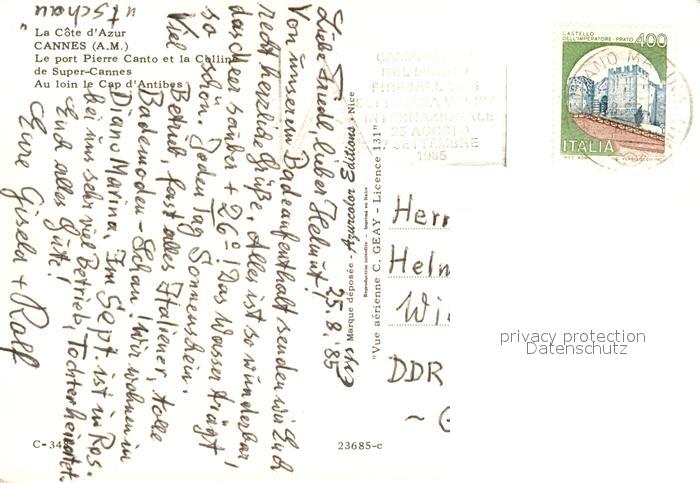 "La Côte d'Azur
CANNES (A.M.)
Le port Pierre Canto et la Colline
de Super-Cannes
Au loin le Cap d'Antibes
25.8.85
Liebe Trudl, lieber Helmut!
Von unserem Badeaufenthalt senden wir Euch
recht herzliche Grüße. Alles ist so wunderbar,
das Meer sauber + 26°! Das Wasser trägt
so schön. Jeden Tag Sonnenschein.
Viel Betrieb, fast alles Italiener, tolle
Bademoden-Schau! Wir wohnen in
Diano Marina. Im Sept. ist in Ros.
bei uns sehr viel Betrieb, Tochter heiratet.
Euch alles Gute!
Eure Gisela + Rolf
C-34
23685-c
Marque déposée - Aquacolor Editions - Nice
Reproduction interdite - Imprimé en Italie
"Vue aérienne C. GEAY - Licence 131"
CAMPIONATO
DEL MONDO
FIREBALL 1985
INTERNAZIONALE
23 AGOSTO
SETTEMBRE
1985
CASTELLO
DELL'IMPERATORE - PRATO
400
ITALIA
DIANO MARINA
Herr
Helm
Wi
DDR
privacy protection
Datenschutz